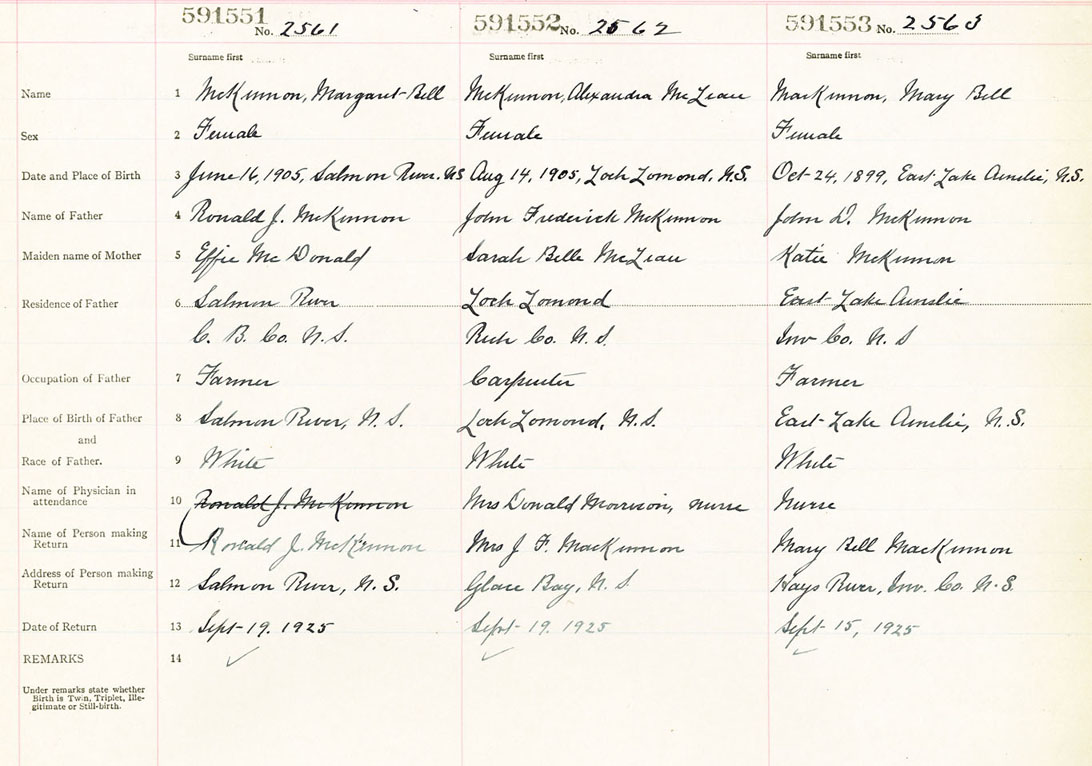 591551 No. 2561 591552 No. 2562 591553 No. 2563
Surname first Surname first Surname first
Name 1 McKinnon, Margaret Bell McKinnon, Alexandra McLean MacKinnon, Mary Bell
Sex 2 Female Female Female
Date and Place of Birth 3 June 16, 1905, Salmon River. NS Aug 14, 1905, Loch Lomond, N.S. Oct 24, 1899, East Lake Ainslie, N.S.
Name of Father 4 Ronald J. McKinnon John Frederick McKinnon John D. McKinnon
Maiden name of Mother 5 Effie McDonald Sarah Belle McLean Katie McKinnon
Residence of Father 6 Salmon River Loch Lomond East Lake Ainslie
C. B. Co. N.S. Rich Co. N. S. Inv Co. N. S
Occupation of Father 7 Farmer Carpenter Farmer
Place of Birth of Father 8 Salmon River, N. S. Loch Lomond, N.S. East Lake Ainslie, N.S.
and
Race of Father. 9 White White White
Name of Physician in
attendance 10 Ronald J. McKinnon Mrs Donald Morrison, nurse Nurse
Name of Person making
Return 11 Ronald J. McKinnon Mrs J. F. MacKinnon Mary Bell MacKinnon
Address of Person making
Return 12 Salmon River, N.S. Glace Bay, N. S Hays River, Inv. Co. N.S.
Date of Return 13 Sept 19. 1925 Sept 19. 1925 Sept 15, 1925
REMARKS 14
Under remarks state whether
Birth is Twin, Triplet, Ille-
gitimate or Still-birth.